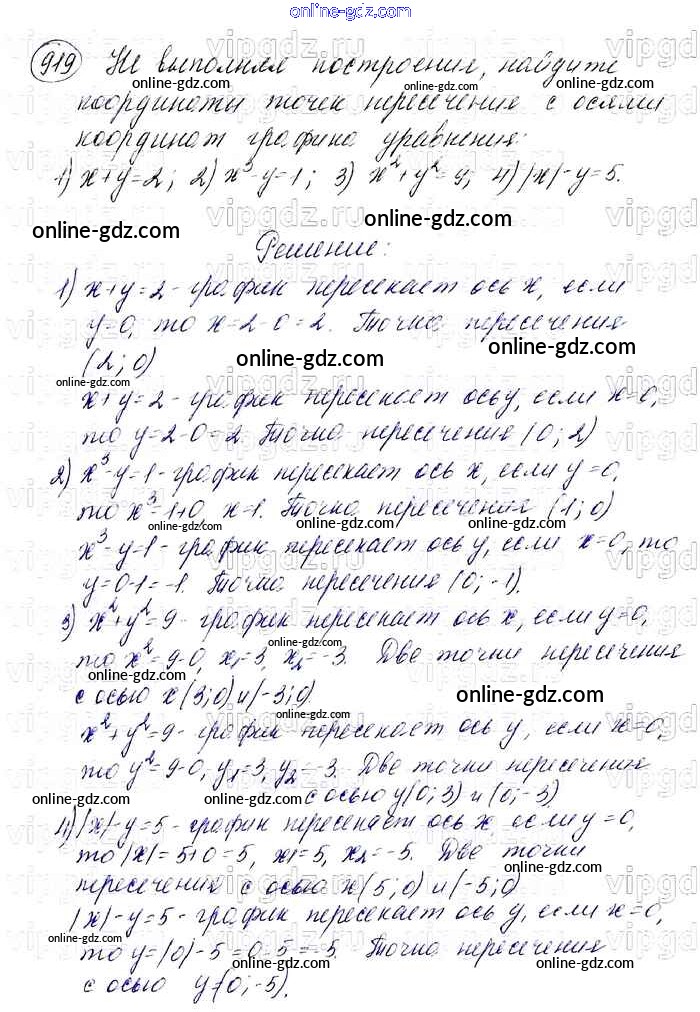 online-gdz.com
919 Не выполняя построения, найдите
координаты точек пересечения с осями
координат графика уравнения:
1) x+y=2; 2) x³-y=1; 3) x²+y²=9; 4) |x|-y=5.
Решение:
1) x+y=2 - график пересекает ось x, если
y=0, то x=2-0=2. Точка пересечения
(2; 0)
x+y=2 - график пересекает ось y, если x=0,
то y=2-0=2. Точка пересечения (0; 2)
2) x³-y=1 - график пересекает ось x, если y=0,
то x³=1+0, x=1. Точка пересечения (1; 0)
x³-y=1 - график пересекает ось y, если x=0, то
y=0-1=-1. Точка пересечения (0; -1).
3) x²+y²=9 - график пересекает ось x, если y=0,
то x²=9-0, x₁=3, x₂=-3. Две точки пересечения
с осью x (3; 0) и (-3; 0).
x²+y²=9 - график пересекает ось y, если x=0,
то y²=9-0, y₁=3, y₂=-3. Две точки пересечения
с осью y (0; 3) и (0; -3)
4) |x|-y=5 - график пересекает ось x, если y=0,
то |x|=5+0=5, x₁=5, x₂=-5. Две точки
пересечения с осью x (5; 0) и (-5; 0)
|x|-y=5 - график пересекает ось y, если x=0,
то y=|0|-5=0-5=-5. Точка пересечения
с осью y (0; -5).